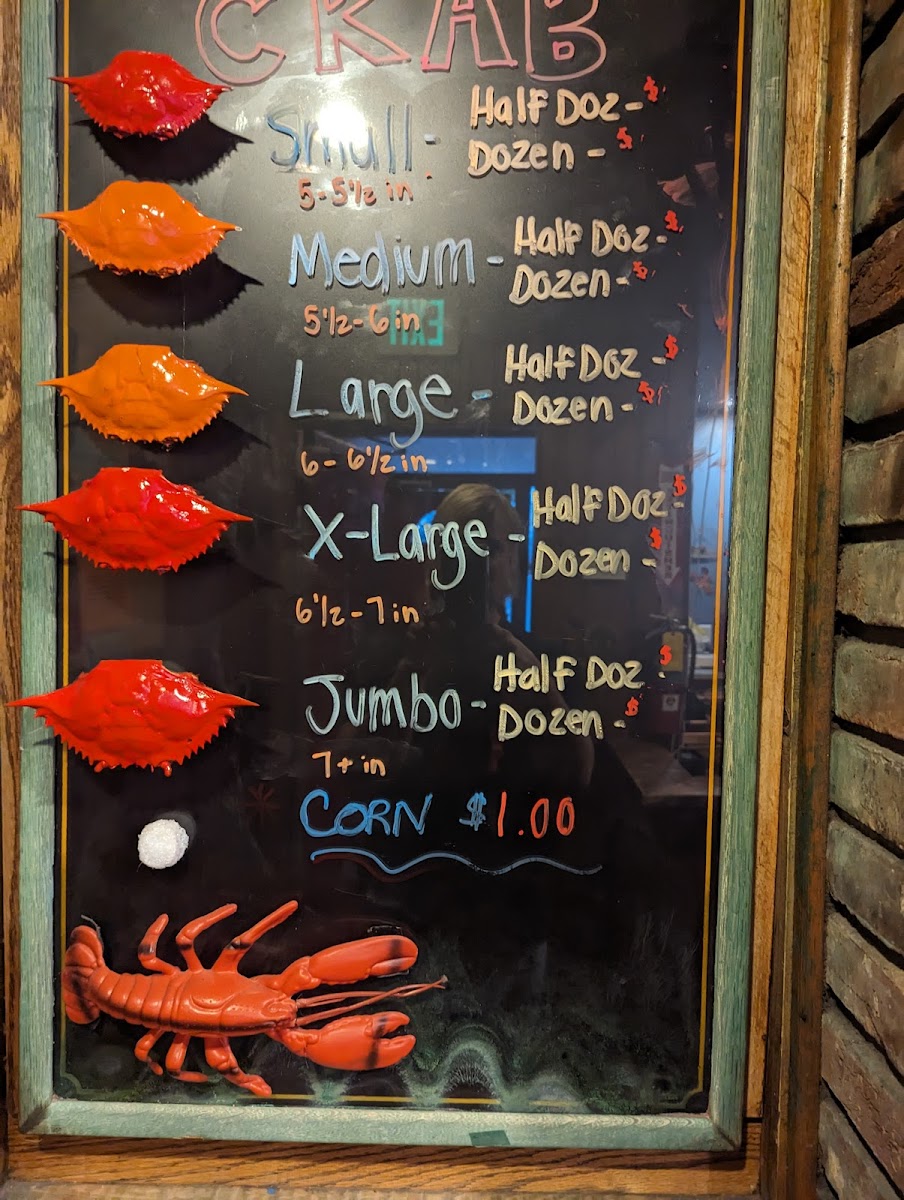 CRAB
Small - Half Doz - $
Dozen - $
5-5 1/2 in
Medium - Half Doz - $
Dozen - $
5 1/2 - 6 in
EXIT
Large - Half Doz - $
Dozen - $
6 - 6 1/2 in
X-Large - Half Doz - $
Dozen - $
6 1/2 - 7 in
Jumbo - Half Doz - $
Dozen - $
7+ in
CORN $1.00